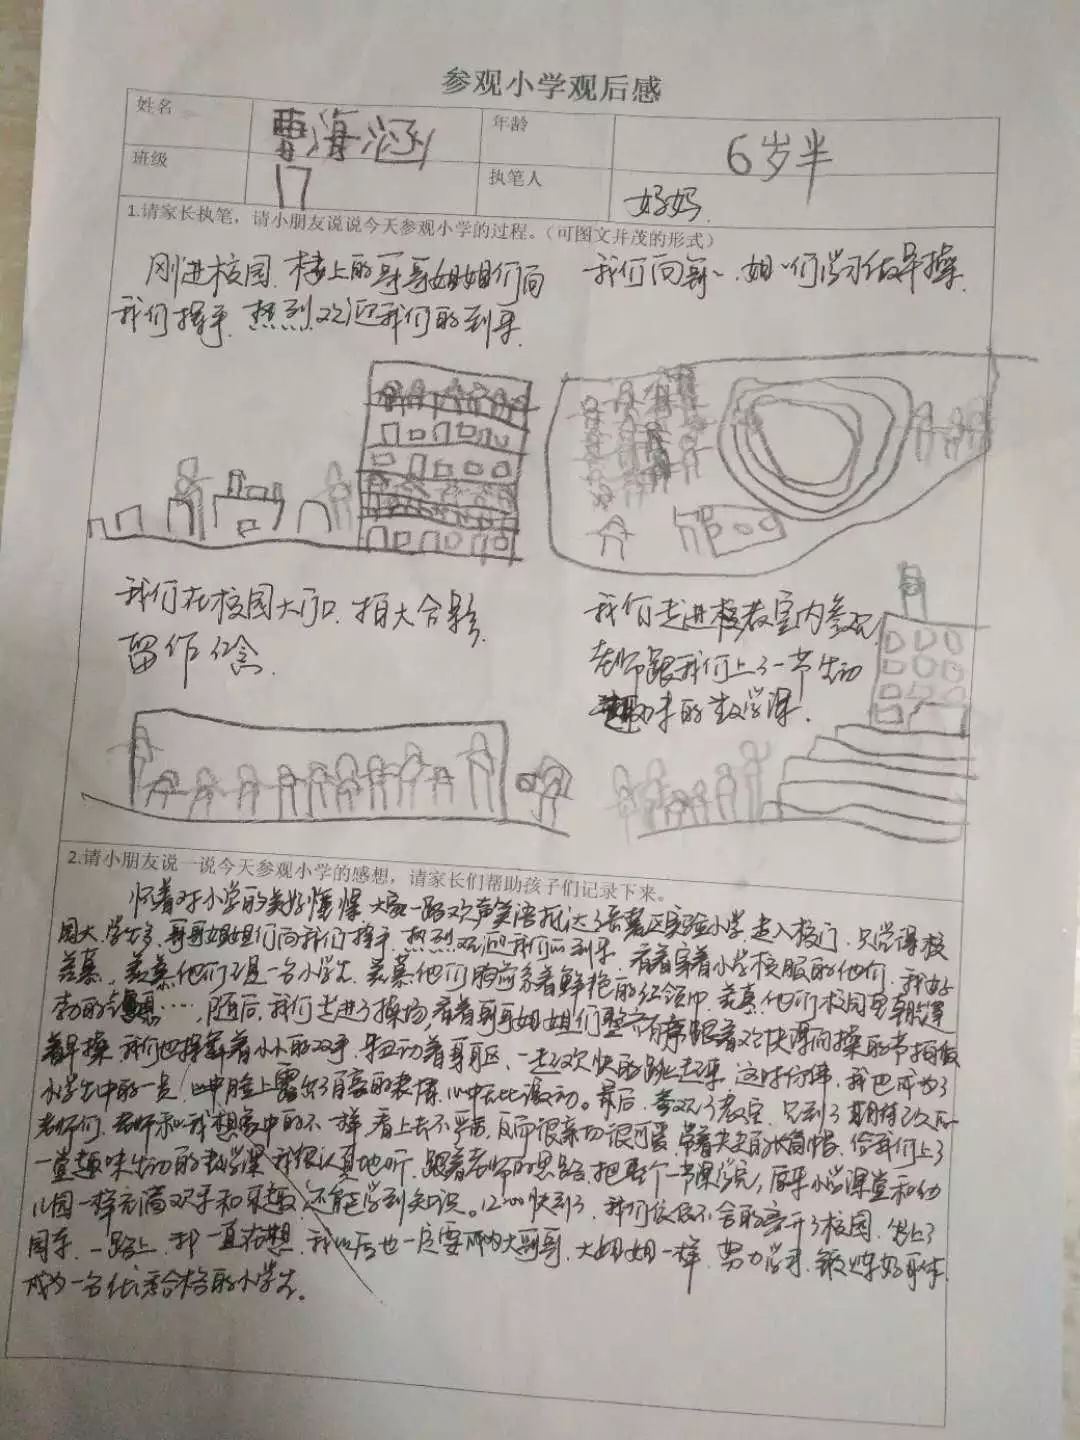 参观小学观后感
姓名 曹海涵 年龄 6岁半
班级 17 执笔人 妈妈
1.请家长执笔，请小朋友说说今天参观小学的过程。（可图文并茂的形式）
刚进校园，楼上的哥哥姐姐们向
我们挥手，热烈欢迎我们的到来
我们向哥〃、姐〃们学习做早操
我们在校园大门口，拍大合影，
留作纪念
我们走进教室内参观
老师跟我们上了一节生动
趣味的数学课
2.请小朋友说一说今天参观小学的感想，请家长们帮助孩子们记录下来。
怀着对小学的美好憧憬，大家一路欢声笑语抵达了实验小学，走入校门，只觉得校
园大，学生多，哥哥姐姐们向我们挥手，热烈欢迎我们的到来，看着穿着小学校服的他们，我好
羡慕，羡慕他们已是一名小学生，羡慕他们胸前系着鲜艳的红领巾，羡慕他们校园里朝
勃的……，随后，我们走进了操场，看着哥哥姐姐们整齐有序跟着欢快得向操的节拍做
着早操，我们也挥舞着小小的双手，扭动着身躯，一起欢快的跳起来，这时仿佛，我也成为了
小学生中的一员，脸上露出了自豪的表情，心中无比激动。最后，参观了教室，见到了期待已久的
老师们，老师和我想象中的不一样，看上去不严肃，反而很亲切很可爱，带着大大的，给我们上了
一堂趣味生动的数学课，我很认真地听，跟着老师的思路，把整个一节课学完，原来小学课堂和幼
儿园一样充满欢乐和乐趣，还能学到知识。12:00快到了，我们依依不舍的离开了校园，坐上了
园车，一路上，我一直在想，我以后也一定要那大哥哥，大姐姐一样，努力学习，锻炼好身体，
成为一名优秀合格的小学生。